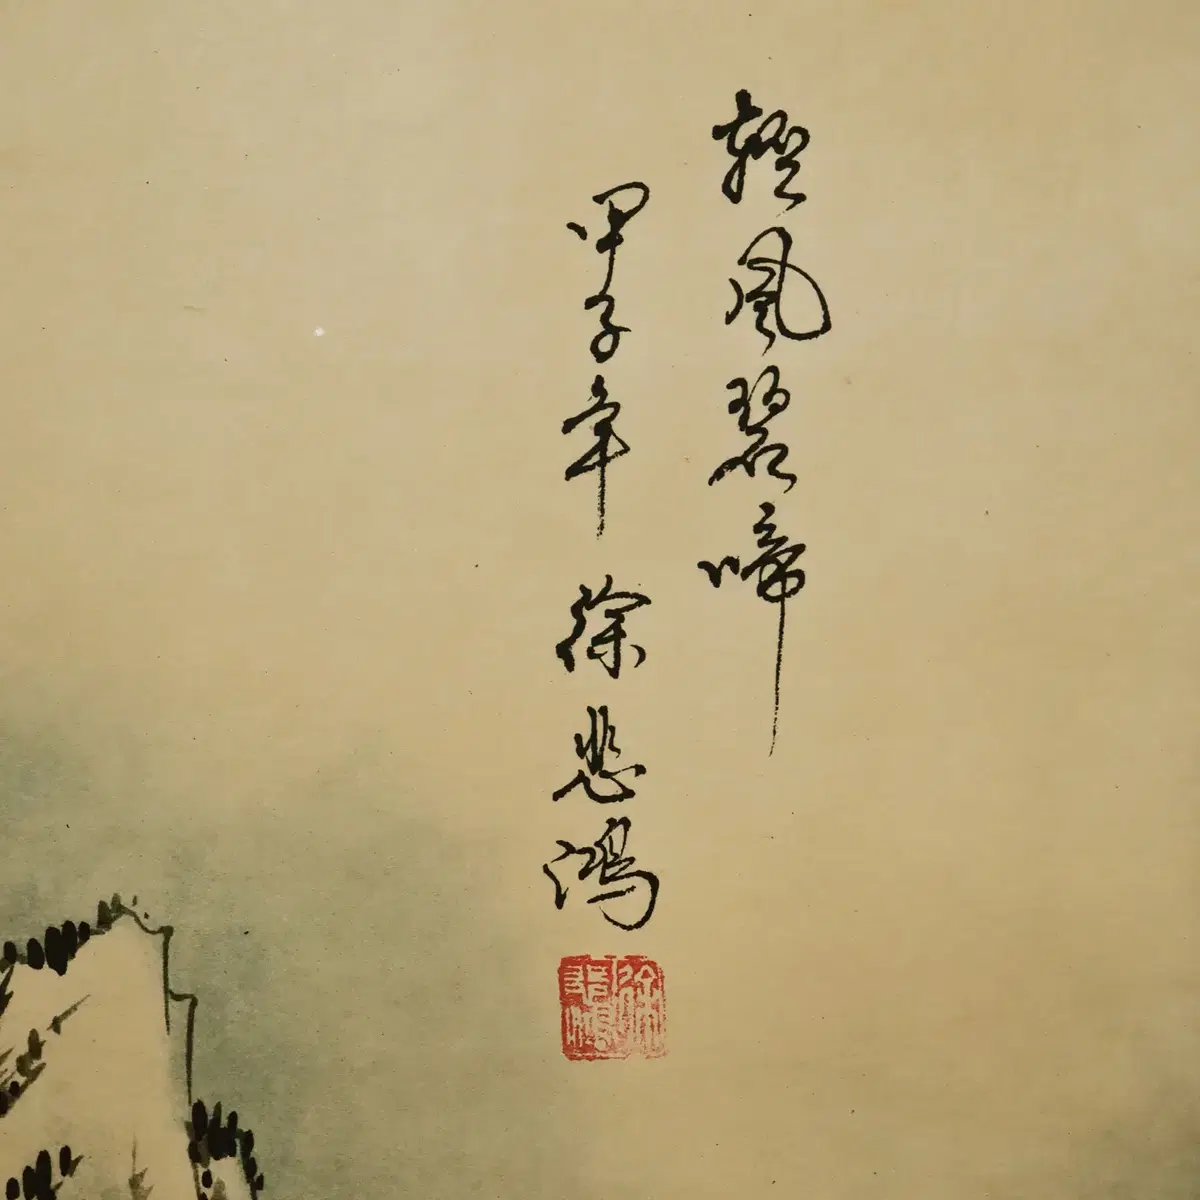 輕風碧啼
甲子年 徐悲鴻
徐悲鴻